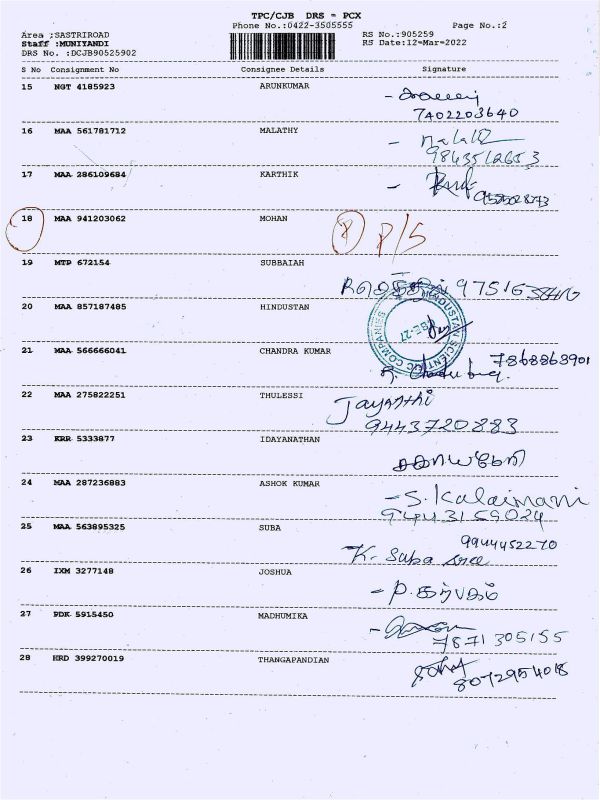 TPC/CJB DRS = PCX
Phone No.:0422-3505555 Page No.:2
Area ;SASTRIROAD RS No.:905259
Staff :MUNIYANDI RS Date:12=Mar=2022
DRS No. :DCJB90525902
S No Consignment No Consignee Details Signature
15 NGT 4185923 ARUNKUMAR
7402203640
16 MAA 561781712 MALATHY
Malathy
9843512653
17 MAA 286109684 KARTHIK
18 MAA 941203062 MOHAN P P/S
19 MTP 672154 SUBBAIAH
97516
20 MAA 857187485 HINDUSTAN
HINDUSTAN SCIENTIFIC COMPANIES
CBE-27
21 MAA 566666041 CHANDRA KUMAR 7868868901
22 MAA 275822251 THULESSI
Jayanthi
9443720883
23 KRR 5333877 IDAYANATHAN
24 MAA 287236883 ASHOK KUMAR
- S. Kalaimani
9443159024
25 MAA 563895325 SUBA
9944452270
K. Suba Sree
26 IXM 3277148 JOSHUA
- P. கற்பகம்
27 PDK 5915450 MADHUMIKA
7871305155
28 HRD 399270019 THANGAPANDIAN
8072954018